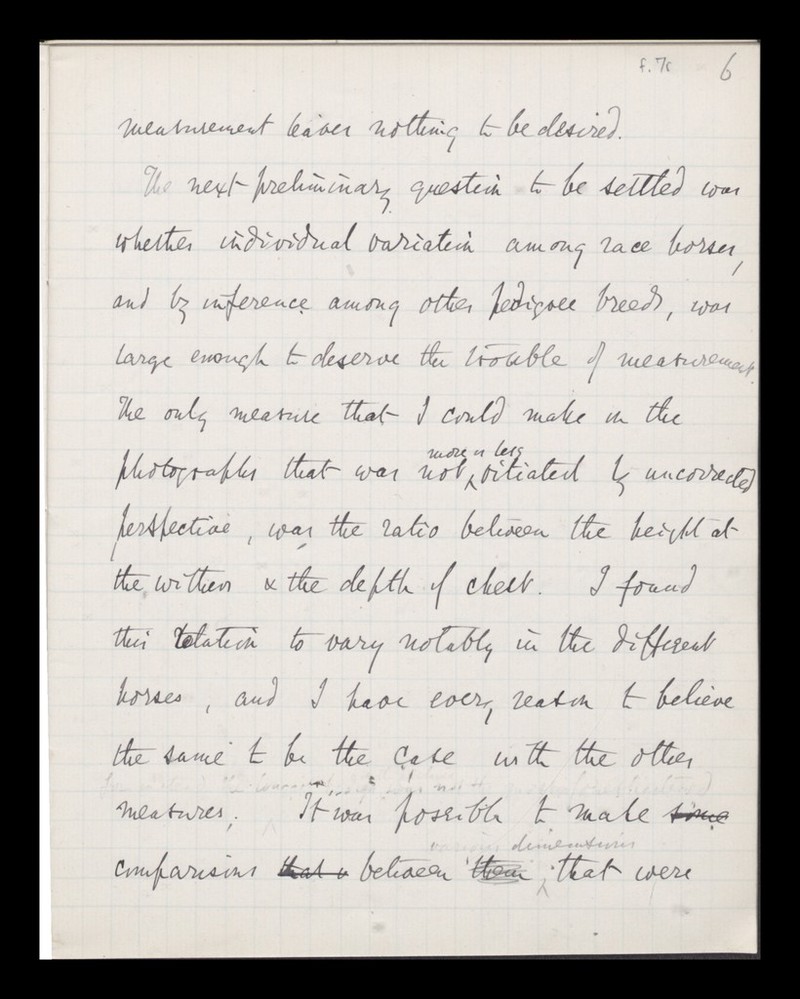 f.7r 6
measurement leaves nothing to be desired.
The next preliminary question to be settled was
whether individual variation among race horses,
and by inference among other pedigree breeds, was
large enough to deserve the trouble of measurement.
The only measure that I could make on the
more or less
photographs that was not vitiated by uncorrected
perspective, was the ratio between the height at
the withers & the depth of chest. I found
this relation to vary notably in the different
horses, and I have every reason to believe
the same to be the case with the other
measures. It was possible to make some
various dimensions
comparisons that between them that were